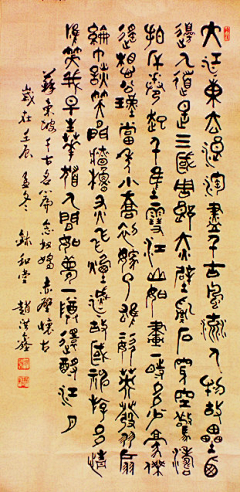 大江東去浪淘盡千古風流人物故壘西
邊人道是三國周郎赤壁亂石穿空驚濤
拍岸卷起千堆雪江山如畫一時多少豪傑
遙想公瑾當年小喬初嫁了雄姿英發羽扇
綸巾談笑間檣櫓灰飛煙滅故國神游多情
應笑我早生華髮人間如夢一樽還酹江月
蘇東坡千古名篇念奴嬌赤壁懷古
歲在壬辰孟冬